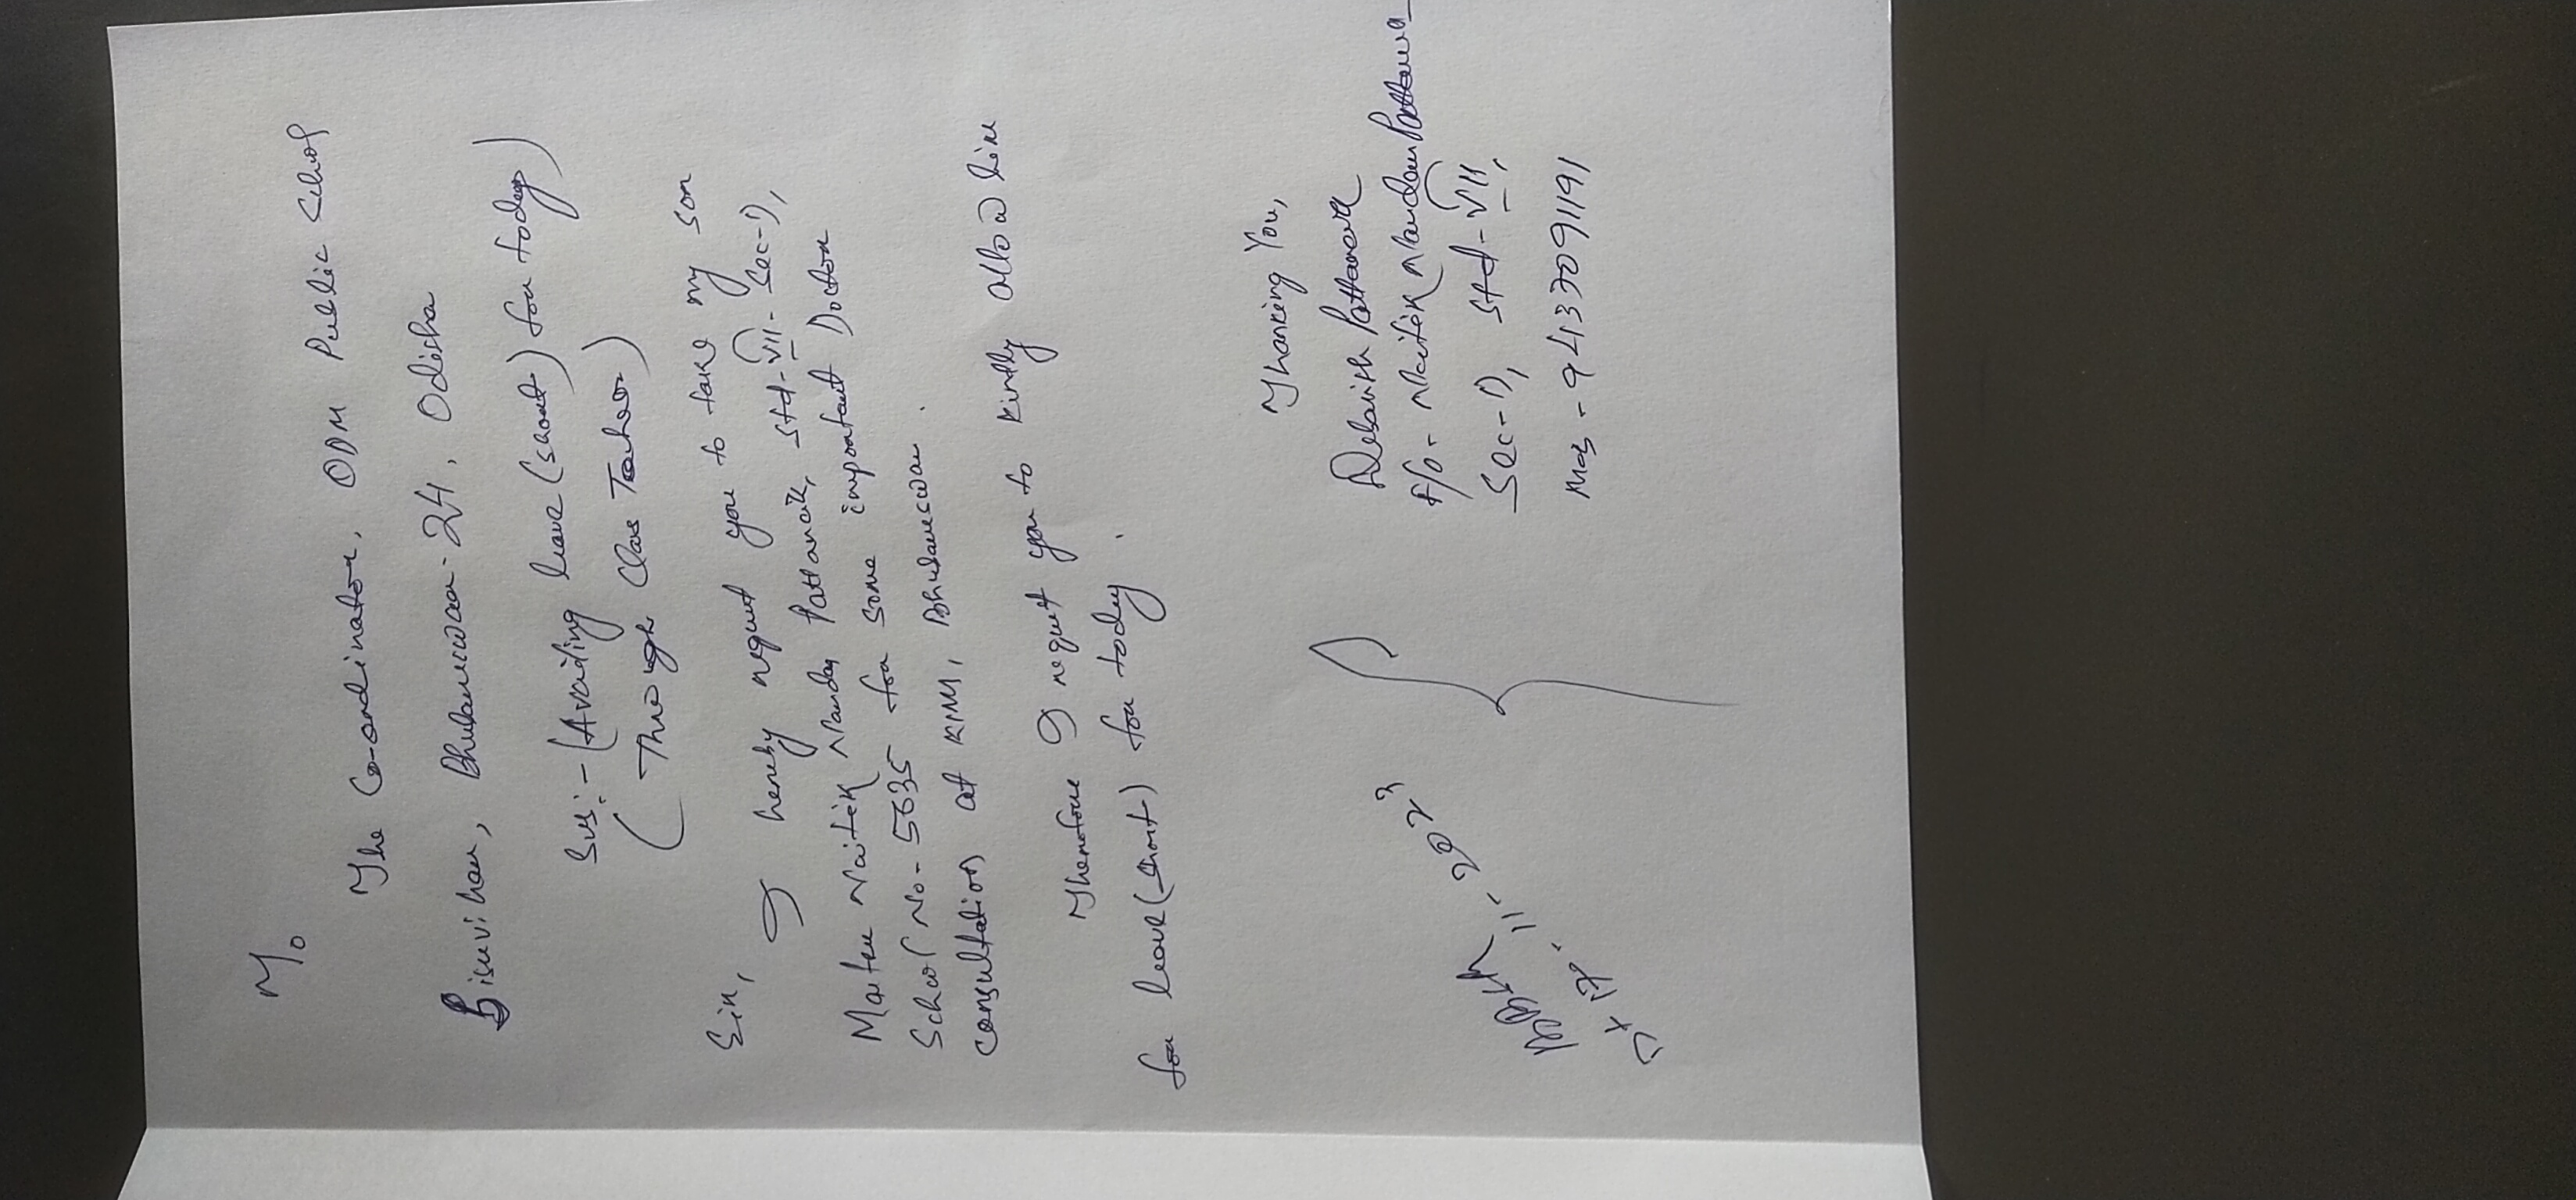 To
The Co-ordinator, ODM Public School
Bisuvihar, Bhubaneswar-24, Odisha
Sub:- (Availing leave (short) for today)
(Through Class Teacher)
Sir,
I hereby request you to take my son
Master Naitik Nanda Pattanaik, Std-VII- Sec-D,
School No- 5635 for some important Doctor
consultation at KIM, Bhubaneswar.
Therefore I request you to kindly allow him
for leave (short) for today.
Thanking You,
Debasish Pattanaik
F/o- Naitik Nandan Pattanaik
Sec-D, Std-VII,
Mob- 9437091191
11- 2023